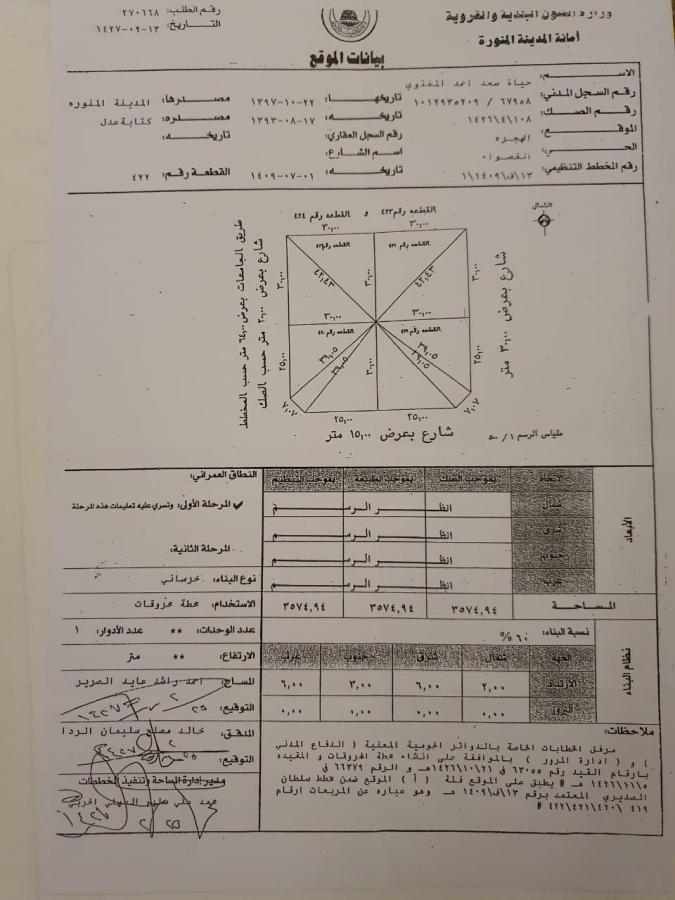 وزارة الشئون البلدية والقروية
أمانة المدينة المنورة
رقم الطلب: ٢٧٠٦٦٨
التاريخ: ١٤٢٧-٠٢-١٣
بيانات الموقع
الاسم: حياة سعد احمد المغذوي
رقم السجل المدني: ١٠١٢٩٣٥٢٠٩ / ٦٧٩٥٨ تاريخها: ١٣٩٧-١٠-٢٢ مصدرها: المدينة المنوره
رقم الصك: ١٤٢٦\٤\١٠٨ تاريخه: ١٣٩٣-٠٨-١٧ مصدره: كتابة عدل
الموقع: الهجره رقم السجل العقاري: تاريخه:
الحي: القصواء اسم الشارع:
رقم المخطط التنظيمي: ١٣\ق\١٤٠٩\١ تاريخه: ١٤٠٩-٠٧-٠١ القطعة رقم: ٤٢٢
الشمال
القطعه رقم ٤٢٣ و القطعه رقم ٤٢٤
٣٠,٠٠ ٣٠,٠٠
القطعه رقم القطعه رقم
٣٠,٠٠ ٤٢,٤٣ ٣٠,٠٠ ٤٢,٤٣ ٣٠,٠٠
٣٠,٠٠ ٣٠,٠٠
القطعه رقم القطعه رقم
٢٥,٠٠ ٣٩,٠٥ ٣٩,٠٥ ٣٠,٠٠ ٣٩,٠٥ ٣٩,٠٥ ٢٥,٠٠
٧,٠٧ ٧,٠٧
٢٥,٠٠ ٢٥,٠٠
شارع بعرض ٣٠,٠٠ متر
شارع بعرض ٢٠,٠٠ متر حسب الصك
طريق الجامعات بعرض ٦٤,٠٠ متر حسب المخطط
شارع بعرض ١٥,٠٠ متر
مقياس الرسم ١/ ٥٠٠
الأبعاد
الاتجاه بموجب الصك بموجب الطبيعة بموجب التنظيم
شمال انظر الرسم
شرق انظر الرسم
جنوب انظر الرسم
غرب انظر الرسم
المساحة ٣٥٧٤,٩٤ ٣٥٧٤,٩٤ ٣٥٧٤,٩٤
النطاق العمراني:
✓ المرحلة الأولى: وتسري عليه تعليمات هذه المرحلة
المرحلة الثانية:
نوع البناء: خرساني
الاستخدام: محطة محروقات
عدد الوحدات: ** عدد الأدوار: ١
الارتفاع: ** متر
نظام البناء
نسبة البناء: ٦٠ %
الجهه شمال شرق جنوب غرب
الارتداد ٢,٠٠ ٦,٠٠ ٣,٠٠ ٦,٠٠
البروز ٠,٠٠ ٠,٠٠ ٠,٠٠ ٠,٠٠
المساح: احمد راشد عايد الصرير
التوقيع:
المدقق: خالد مصلح سليمان الردا
التوقيع:
مدير إدارة المساحة وتنفيذ المخططات
ملاحظات:
مرفق الخطابات الخاصة بالدوائر الحكومية المعنية ( الدفاع المدني
) و ( ادارة المرور ) بالموافقة على انشاء محطة المحروقات و المقيده
بارقام القيد رقم ٦٣٠٥٥ في ١٤٢٦\١٠\٢١هـ و الرقم ٦٦٣٧٩ في
١٤٢٦\١١\٥ هـ # يطبق على الموقع فئة ( أ ) الموقع ضمن مخطط سلطان
السديري المعتمد برقم ١٣\ق\١٤٠٩ هـ وهو عباره عن المربعات ارقام
٤١٩ \٤٢٠\٤٢١\٤٢٢ #